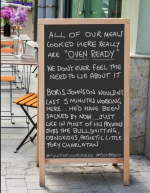 ALL OF OUR MEALS
COOKED HERE REALLY
ARE "OVEN READY"
WE DON'T EVER FEEL THE
NEED TO LIE ABOUT IT
BORIS JOHNSON WOULDN'T
LAST 5 MINUTES WORKING
HERE... HE'D HAVE BEEN
SACKED BY NOW... JUST
LIKE IN MOST OF HIS PREVIOUS
JOBS THE BULLSHITTING,
OBNOXIOUS, PATHETIC LITTLE
TORY CHARLATAN